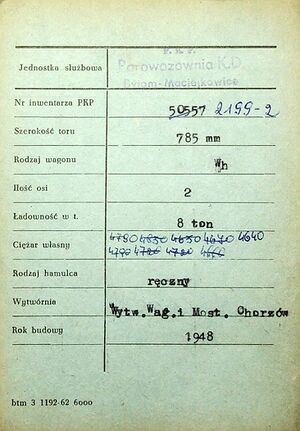 P.K.P.
Jednostka służbowa Parowozownia K.D.
Bytom-Maciejkowice
Nr inwentarza PKP 50557 2199-2
Szerokość toru 785 mm
Rodzaj wagonu Wh
Ilość osi 2
Ładowność w t. 8 ton
Ciężar własny 4640
Rodzaj hamulca ręczny
Wytwórnia Wytw.Wag.i Most. Chorzów
Rok budowy 1948
btm 3 1192-62 6000